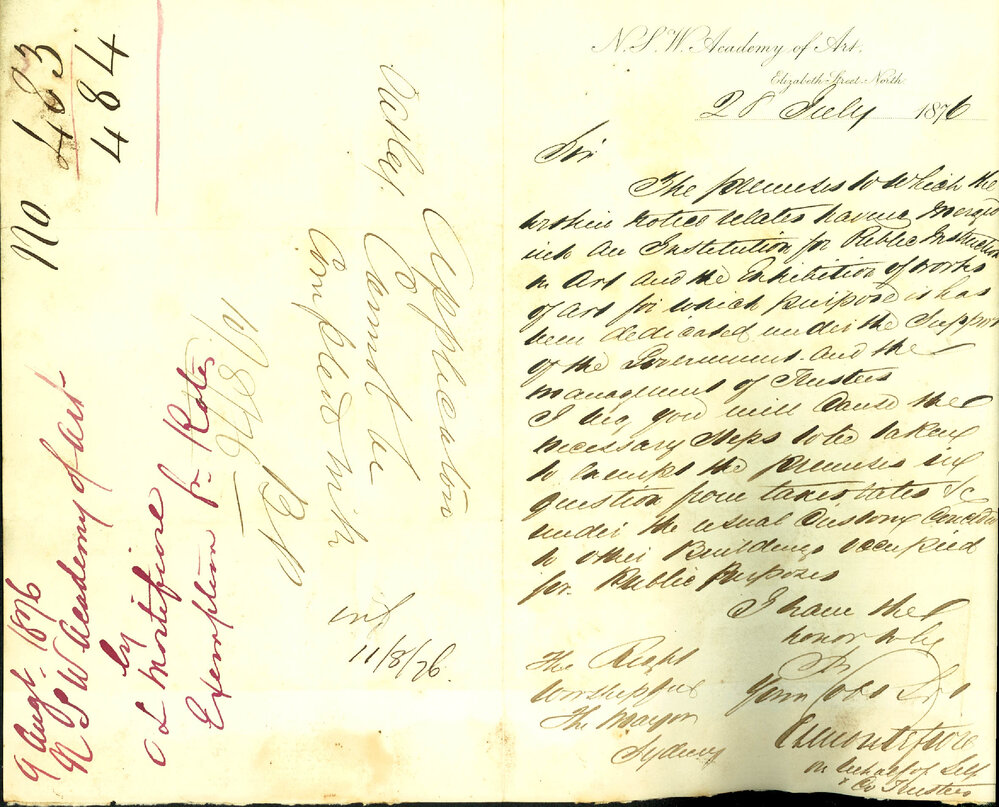 N.S.W. Academy of Art.
Elizabeth Street North.
28 July 1876
Sir
The premises to which the
within notice relates having merged
into an Institution for Public Instruction
in Art and the Exhibition of works
of Art for which purpose it has
been dedicated under the Support
of the Government and the
management of Trustees
I beg you will cause the
necessary steps to be taken
to exempt the premises in
question from taxes rates &c
under the usual Custom conceded
to other Buildings occupied
for Public Purposes
I have the
honor to be
Sir
Your Obd Sr
E L Montefiore
on behalf of Self
& Co Trustees
The Right
Worshipful
The Mayor
Sydney
No 483
484
9 Augt. 1876
N S W Academy of Art
by
E L Montefiore
Exemption fr Rates
Application
Cannot be
Complied with
10/8/76
11/8/76.